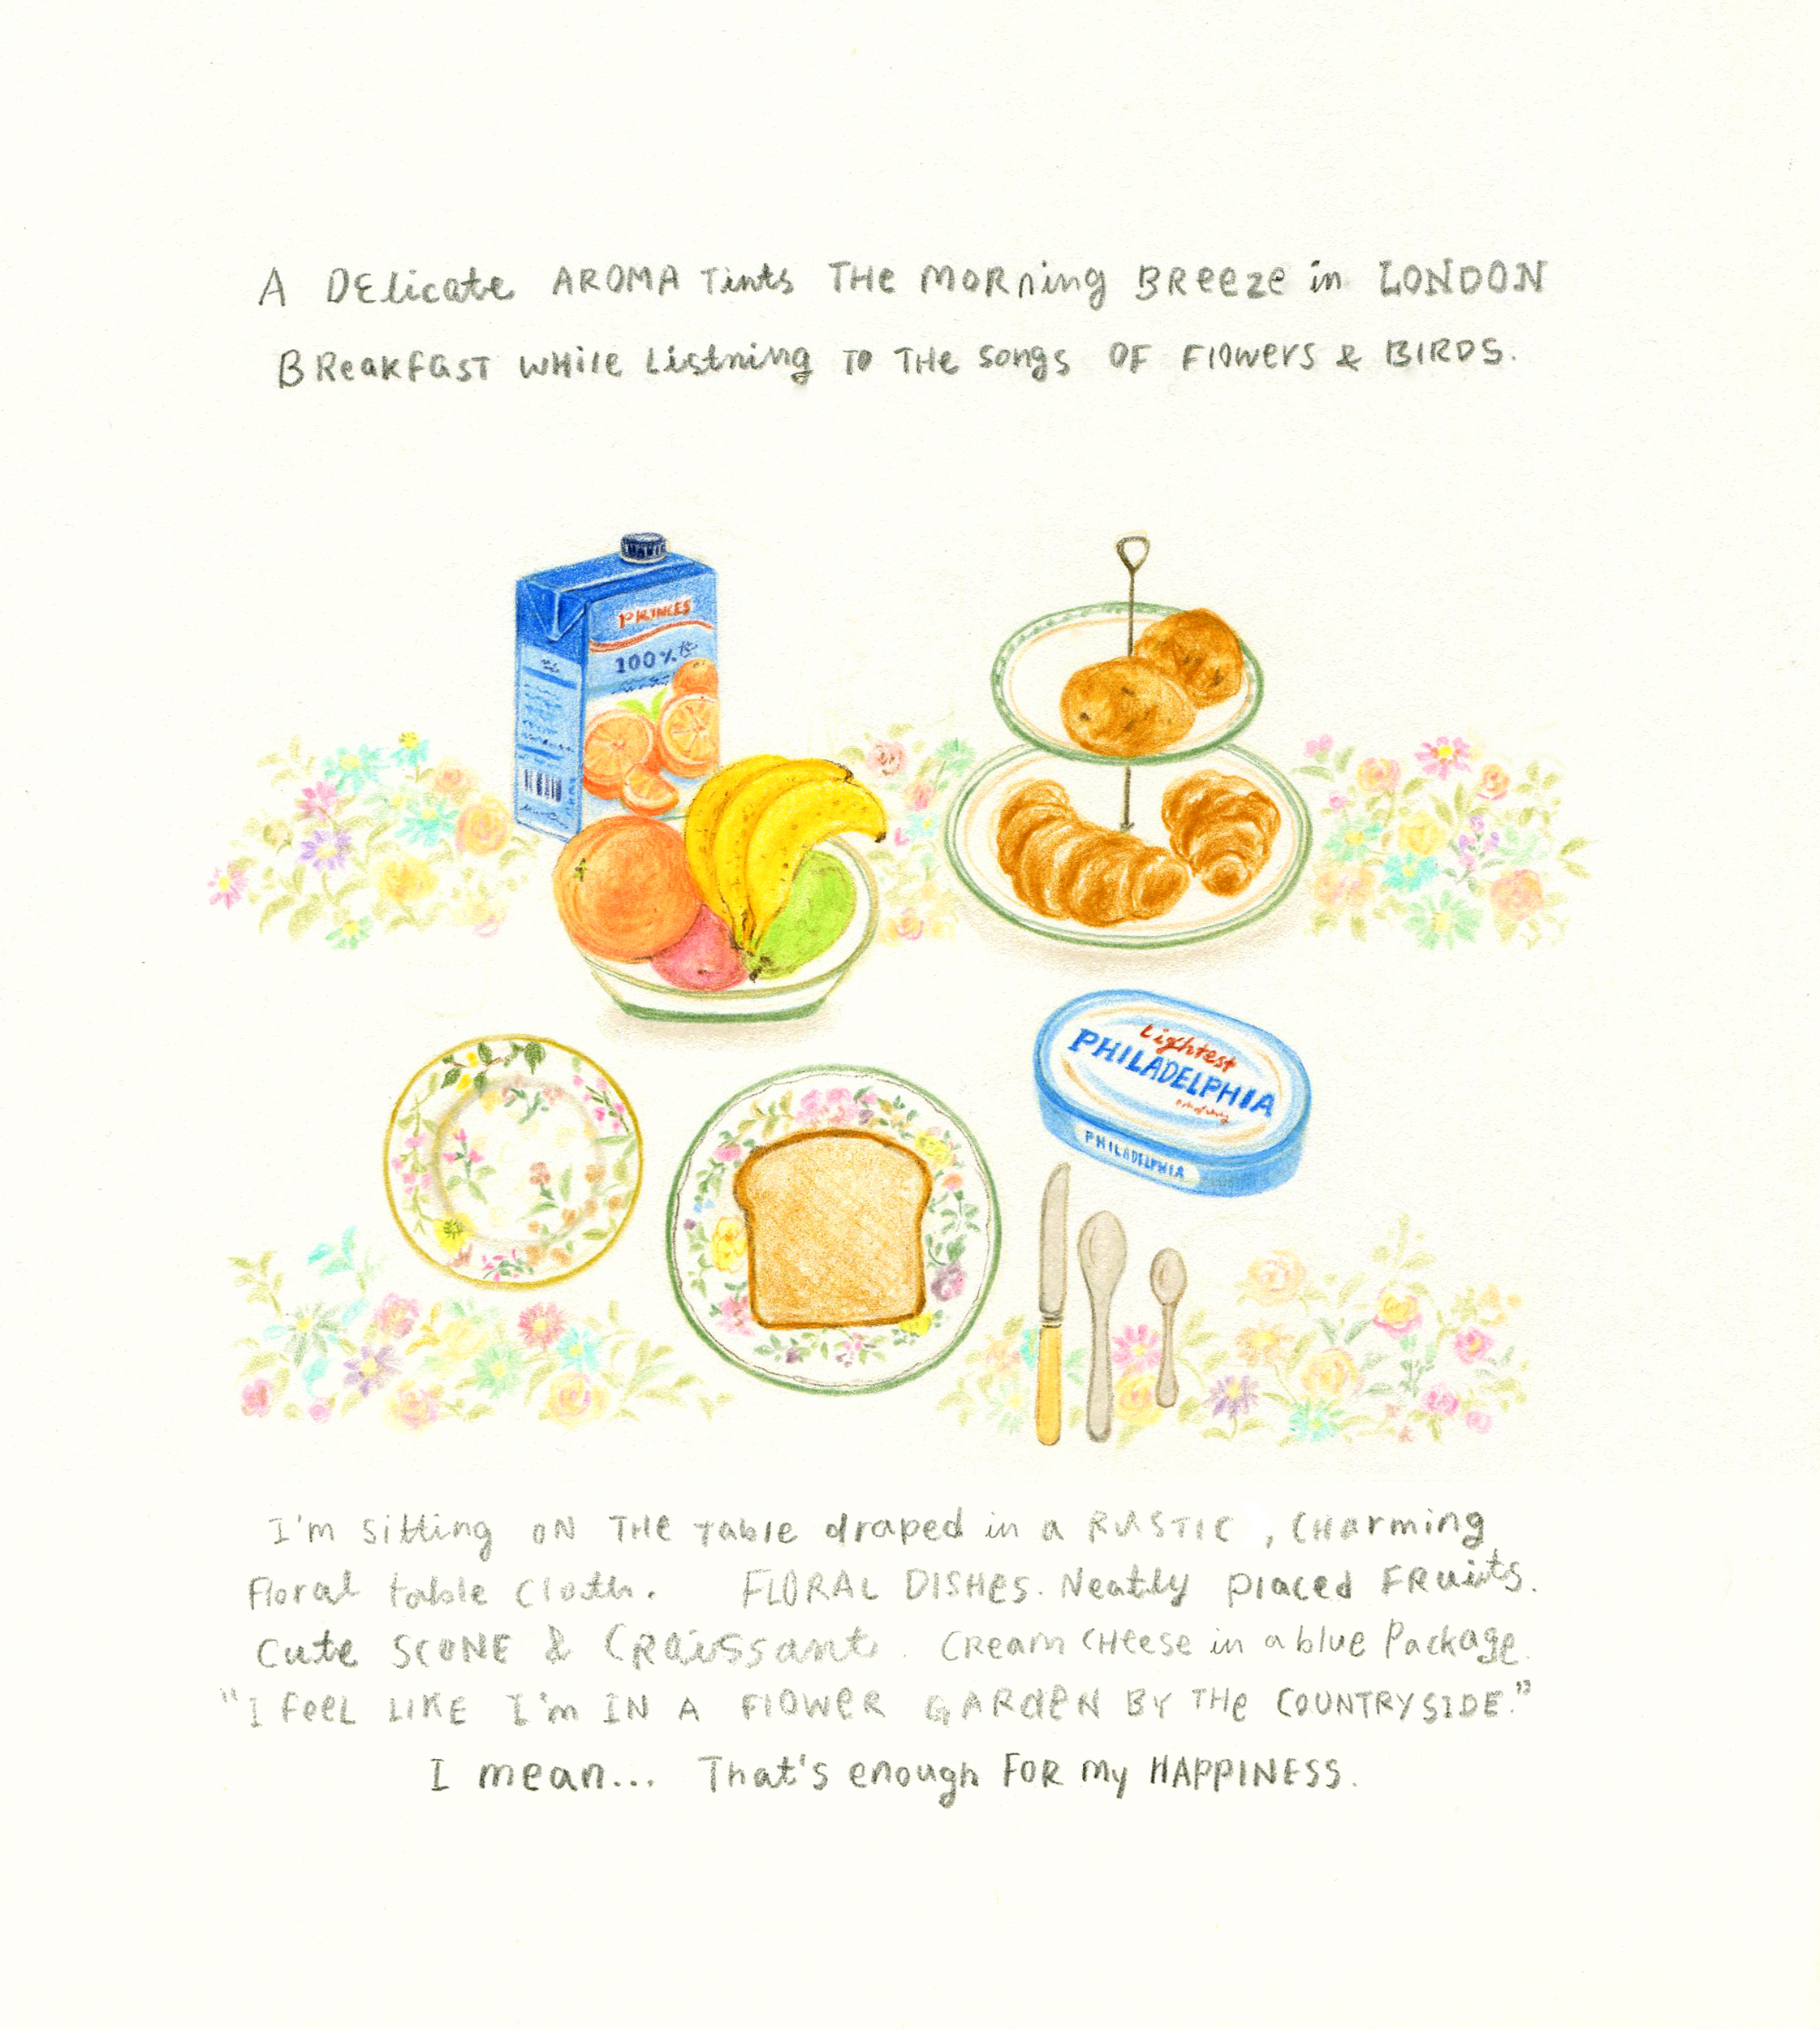 A DElicate AROMA Tints THe MoRning BReeze in LONDON
BReakfaST WHile Listning TO THe songs OF Flowers & BIRDS.
PRINCES
100%
Lightest
PHILADELPHIA
PHILADELPHIA
I'm sitting ON THe Table draped in a RUSTIC , CHarming
Floral table cloth. FLORAL DISHes. Neatly placed FRuits.
Cute SCONE & CRoissant. CReam CHeese in a blue Package.
"I feeL LIKE I'm IN A FlOWeR GARdeN BY THe COUNTRYSIDE."
I mean... That's enough FOR my HAPPINESS.